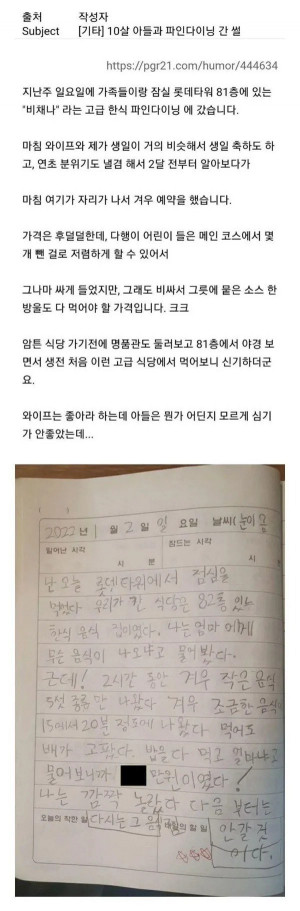 출처 작성자
Subject [기타] 10살 아들과 파인다이닝 간 썰
https://pgr21.com/humor/444634
지난주 일요일에 가족들이랑 잠실 롯데타워 81층에 있는
"비채나" 라는 고급 한식 파인다이닝 에 갔습니다.
마침 와이프와 제가 생일이 거의 비슷해서 생일 축하도 하
고, 연초 분위기도 낼겸 해서 2달 전부터 알아보다가
마침 여기가 자리가 나서 겨우 예약을 했습니다.
가격은 후덜덜한데, 다행이 어린이 들은 메인 코스에서 몇
개 뺀 걸로 저렴하게 할 수 있어서
그나마 싸게 들었지만, 그래도 비싸서 그릇에 붙은 소스 한
방울도 다 먹어야 할 가격입니다. 크크
암튼 식당 가기전에 명품관도 둘러보고 81층에서 야경 보
면서 생전 처음 이런 고급 식당에서 먹어보니 신기하더군
요.
와이프는 좋아라 하는데 아들은 뭔가 어딘지 모르게 심기
가 안좋았는데...
2022년 1월 2일 일요일 날씨(눈이 옴
일어난 시각 시 분 잠드는 시각 시
난 오늘 롯데타워에서 점심을
먹었다 우리가 간 식당은 82층 있는
한식 음식 집이였다. 나는 엄마 에게
무슨 음식이 나오냐고 물어 봤다.
근데! 2시간 동안 겨우 작은 음식
5섯 종류만 나왔다 겨우 조금한 음식이
15에서 20분 정도에 나왔다 먹어도
배가 고팠다. 밥을 다 먹고 얼마냐고
물어보니까. 만원이였다!
나는 깜짝 놀랐다 다음 부터는
오늘의 착한 일 다시는 그 음 내일의 할 일 안갈 것
이다.